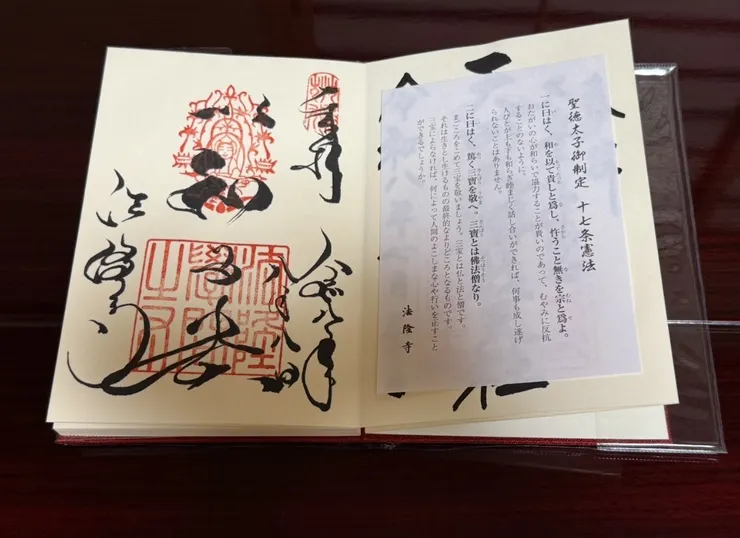 聖徳太子御制定　十七条憲法
一に曰はく、和を以て貴しと爲し、忤うこと無きを宗と爲よ。
おたがいの心が和らいで協力することが貴いのであって、むやみに反抗
することのないように。
人びとが上も下も和らぎ睦まじく話し合いができれば、何事も成し遂げ
られないことはありません。
二に曰はく、篤く三寶を敬へ。三寶とは佛法僧なり。
まごころをこめて三宝を敬いましょう。三宝とは仏と法と僧です。
それは生きとし生けるものの最終的なよりどころとなるものです。
三宝によらなければ、何によって人間のよこしまな心や行いを正すこと
ができるでしょうか。
法隆寺
奉拝
以和為貴
法隆寺